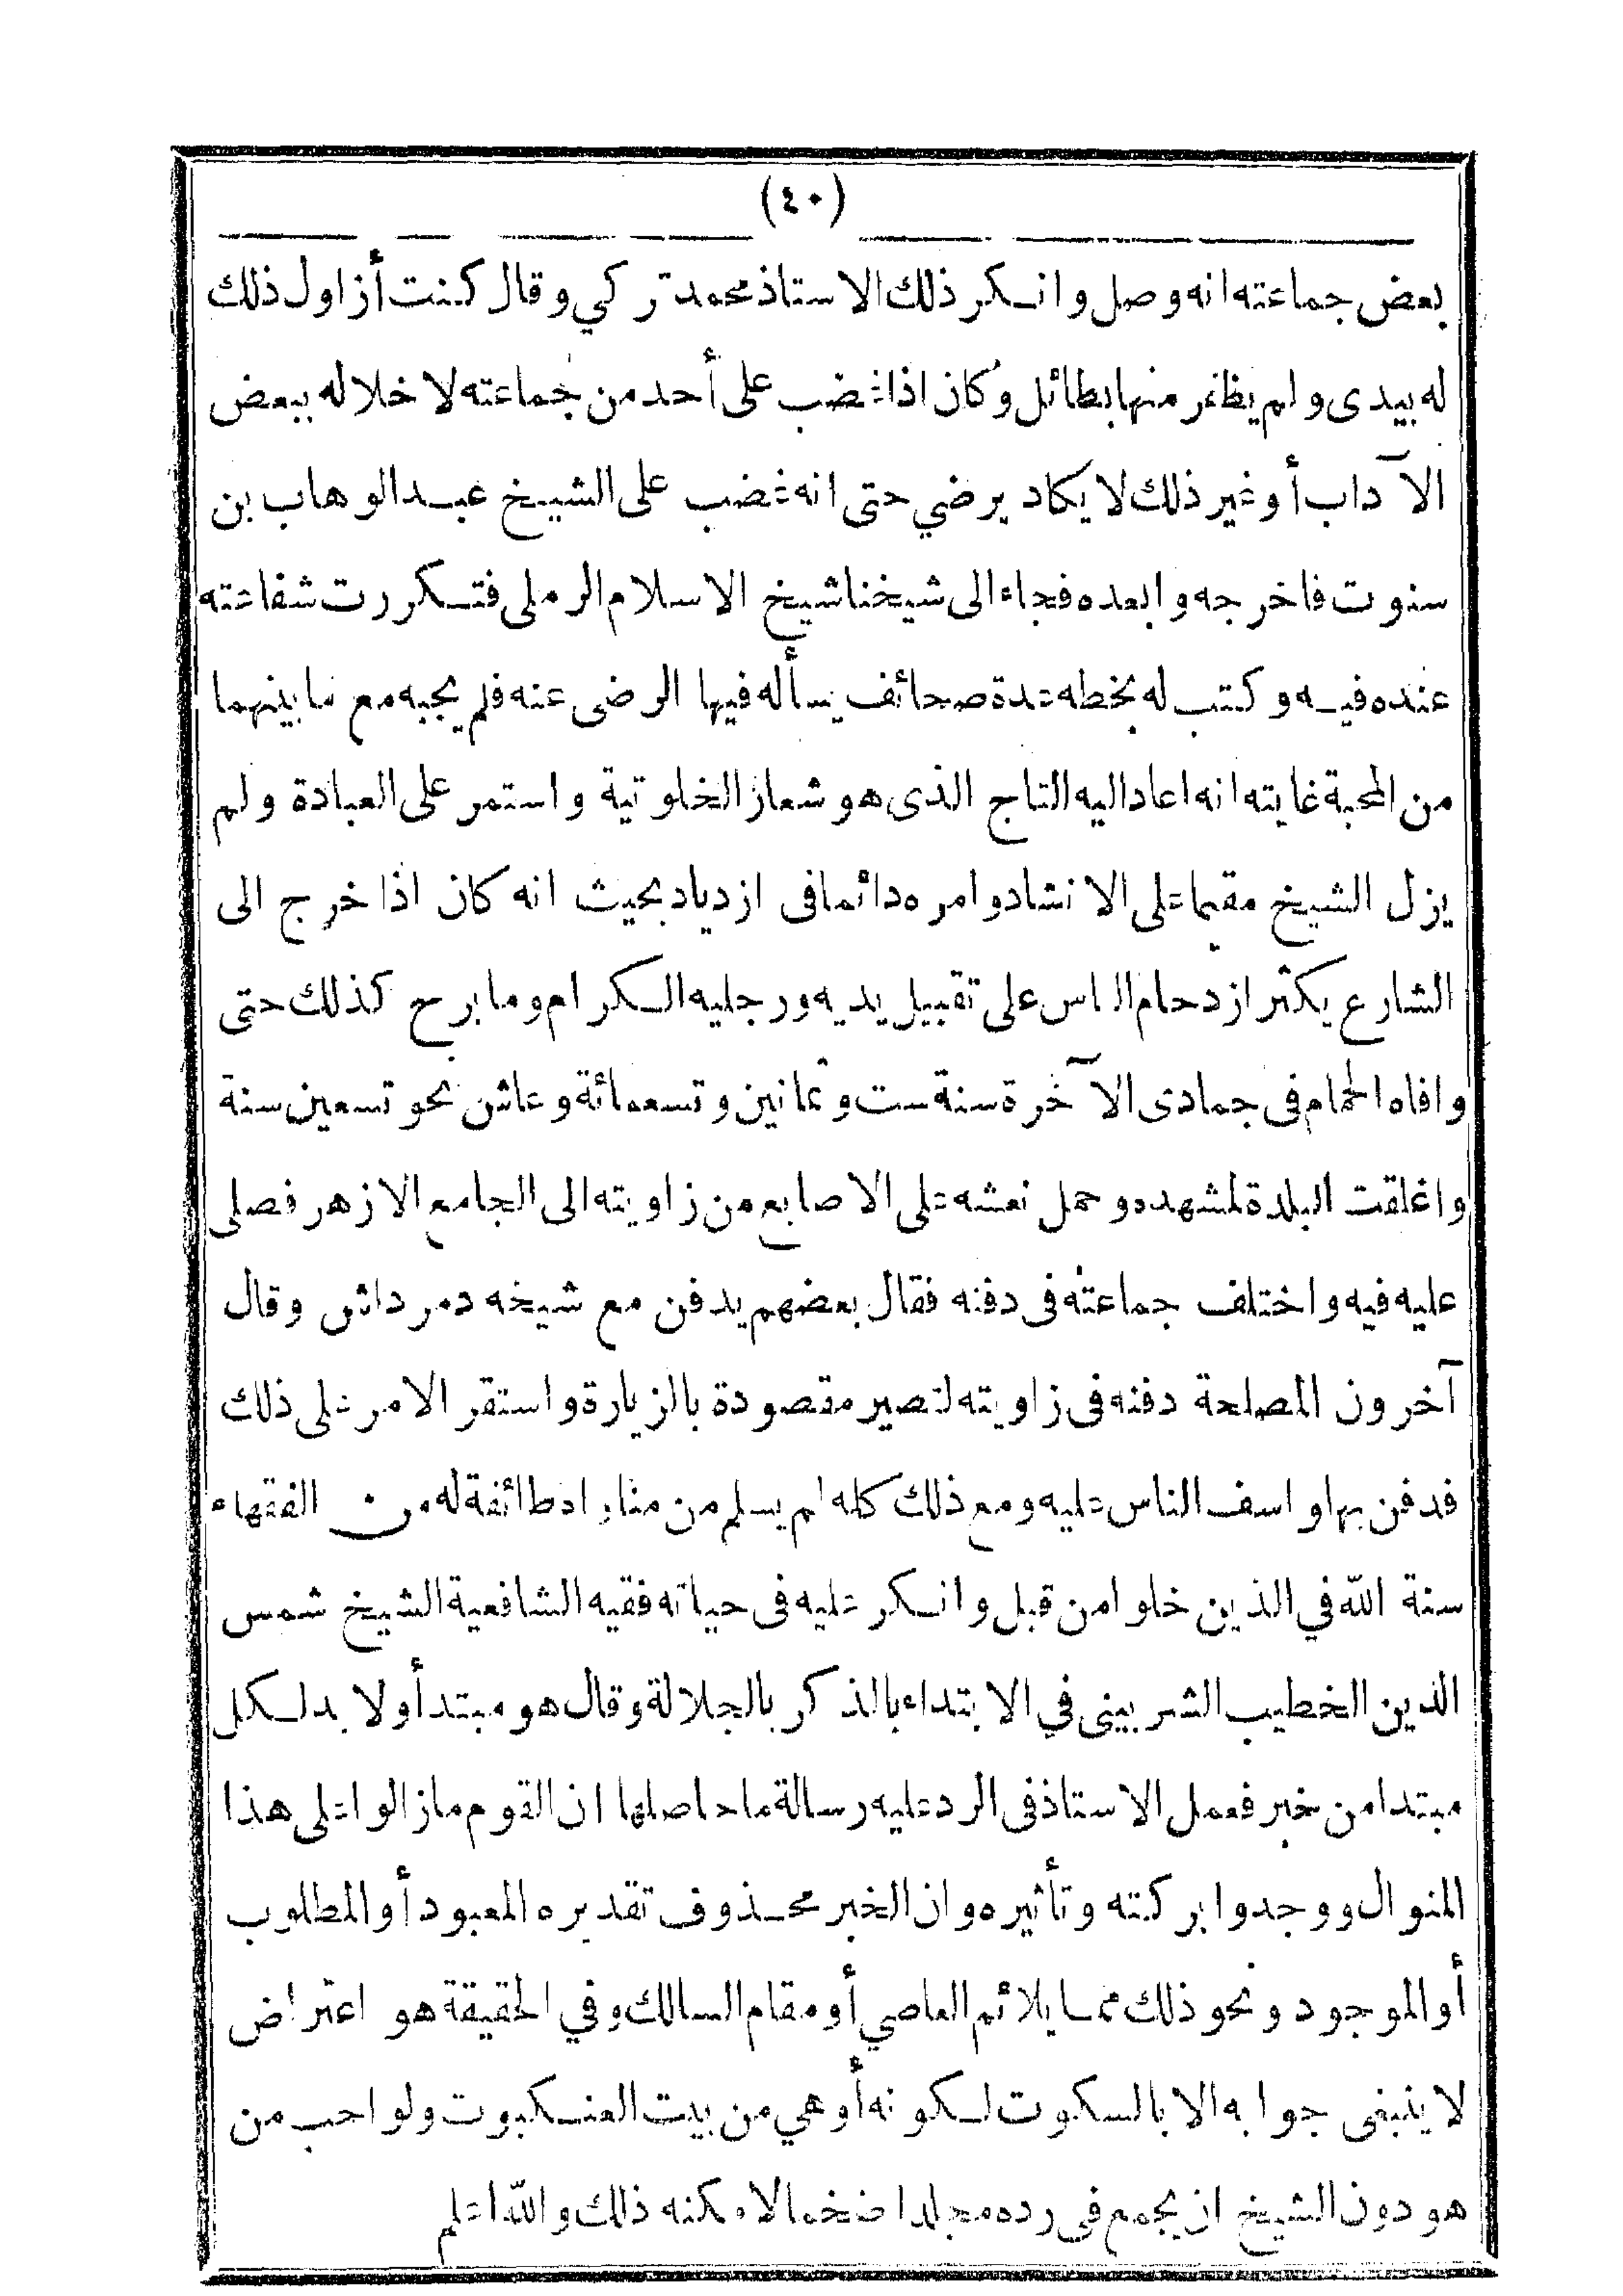 (٤٠)
بعض جماعته انه وصل وانكر ذلك الاستاذ محمد تركي وقال كنت أزاول ذلك
له بيدى ولم يظفر منها بطائل وكان اذا غضب على أحد من جماعته لاخلاله ببعض
الآداب أو غير ذلك لا يكاد يرضي حتى انه غضب على الشيخ عبد الوهاب بن
سنوت فاخرجه وابعده فجاء الى شيخنا شيخ الاسلام الرملى فتكررت شفاعته
عنده فيه وكتب له بخطه عدة صحائف يسأله فيها الرضى عنه فلم يجبه مع ما بينهما
من المحبة غايته انه اعاد اليه التاج الذى هو شعار الخلوتية واستمر على العبادة ولم
يزل الشيخ مقيما على الانشاد وامره دائما فى ازدياد بحيث انه كان اذا خرج الى
الشارع يكثر ازدحام الناس على تقبيل يديه ورجليه الكرام وما برح كذلك حتى
وافاه الحمام فى جمادى الآخرة سنة ست وثمانين وتسعمائة وعاش نحو تسعين سنة
واغلقت البلدة لمشهده وحمل نعشه على الاصابع من زاويته الى الجامع الازهر فصلى
عليه فيه واختلف جماعته فى دفنه فقال بعضهم يدفن مع شيخه دمرداش وقال
آخرون المصلحة دفنه فى زاويته لتصير مقصودة بالزيارة واستقر الامر على ذلك
فدفن بها واسف الناس عليه ومع ذلك كله لم يسلم من مناواة طائفة له من الفقهاء
سنة الله في الذين خلوا من قبل وانكر عليه فى حياته فقيه الشافعية الشيخ شمس
الدين الخطيب الشربينى في الابتداء بالذكر بالجلالة وقال هو مبتدأ ولا بد لكل
مبتدا من خبر فعمل الاستاذ فى الرد عليه رسالة ما حاصلها ان القوم ما زالوا على هذا
المنوال ووجدوا بركته وتأثيره وان الخبر محذوف تقديره المعبود أو المطلوب
أو الموجود ونحو ذلك مما يلائم العاصي أو مقام السالك وفي الحقيقة هو اعتراض
لا ينبغى جوابه الا بالسكوت لكونه أوهي من بيت العنكبوت ولو احب من
هو دون الشيخ ان يجمع فى رده مجلدا ضخما لامكنه ذلك والله اعلم